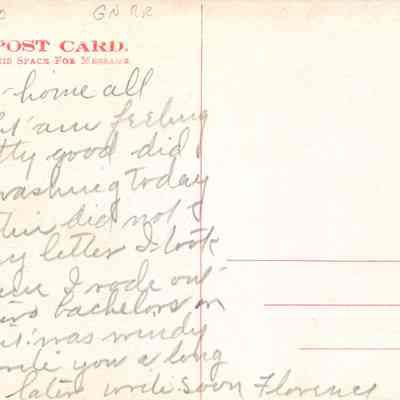 GN RR
POST CARD.
THIS SPACE FOR MESSAGE
home all
am feeling
tty good did
washing today
did not
my letter I took
I rode out
bachelors on
it was windy
write you a long
later write soon Florence